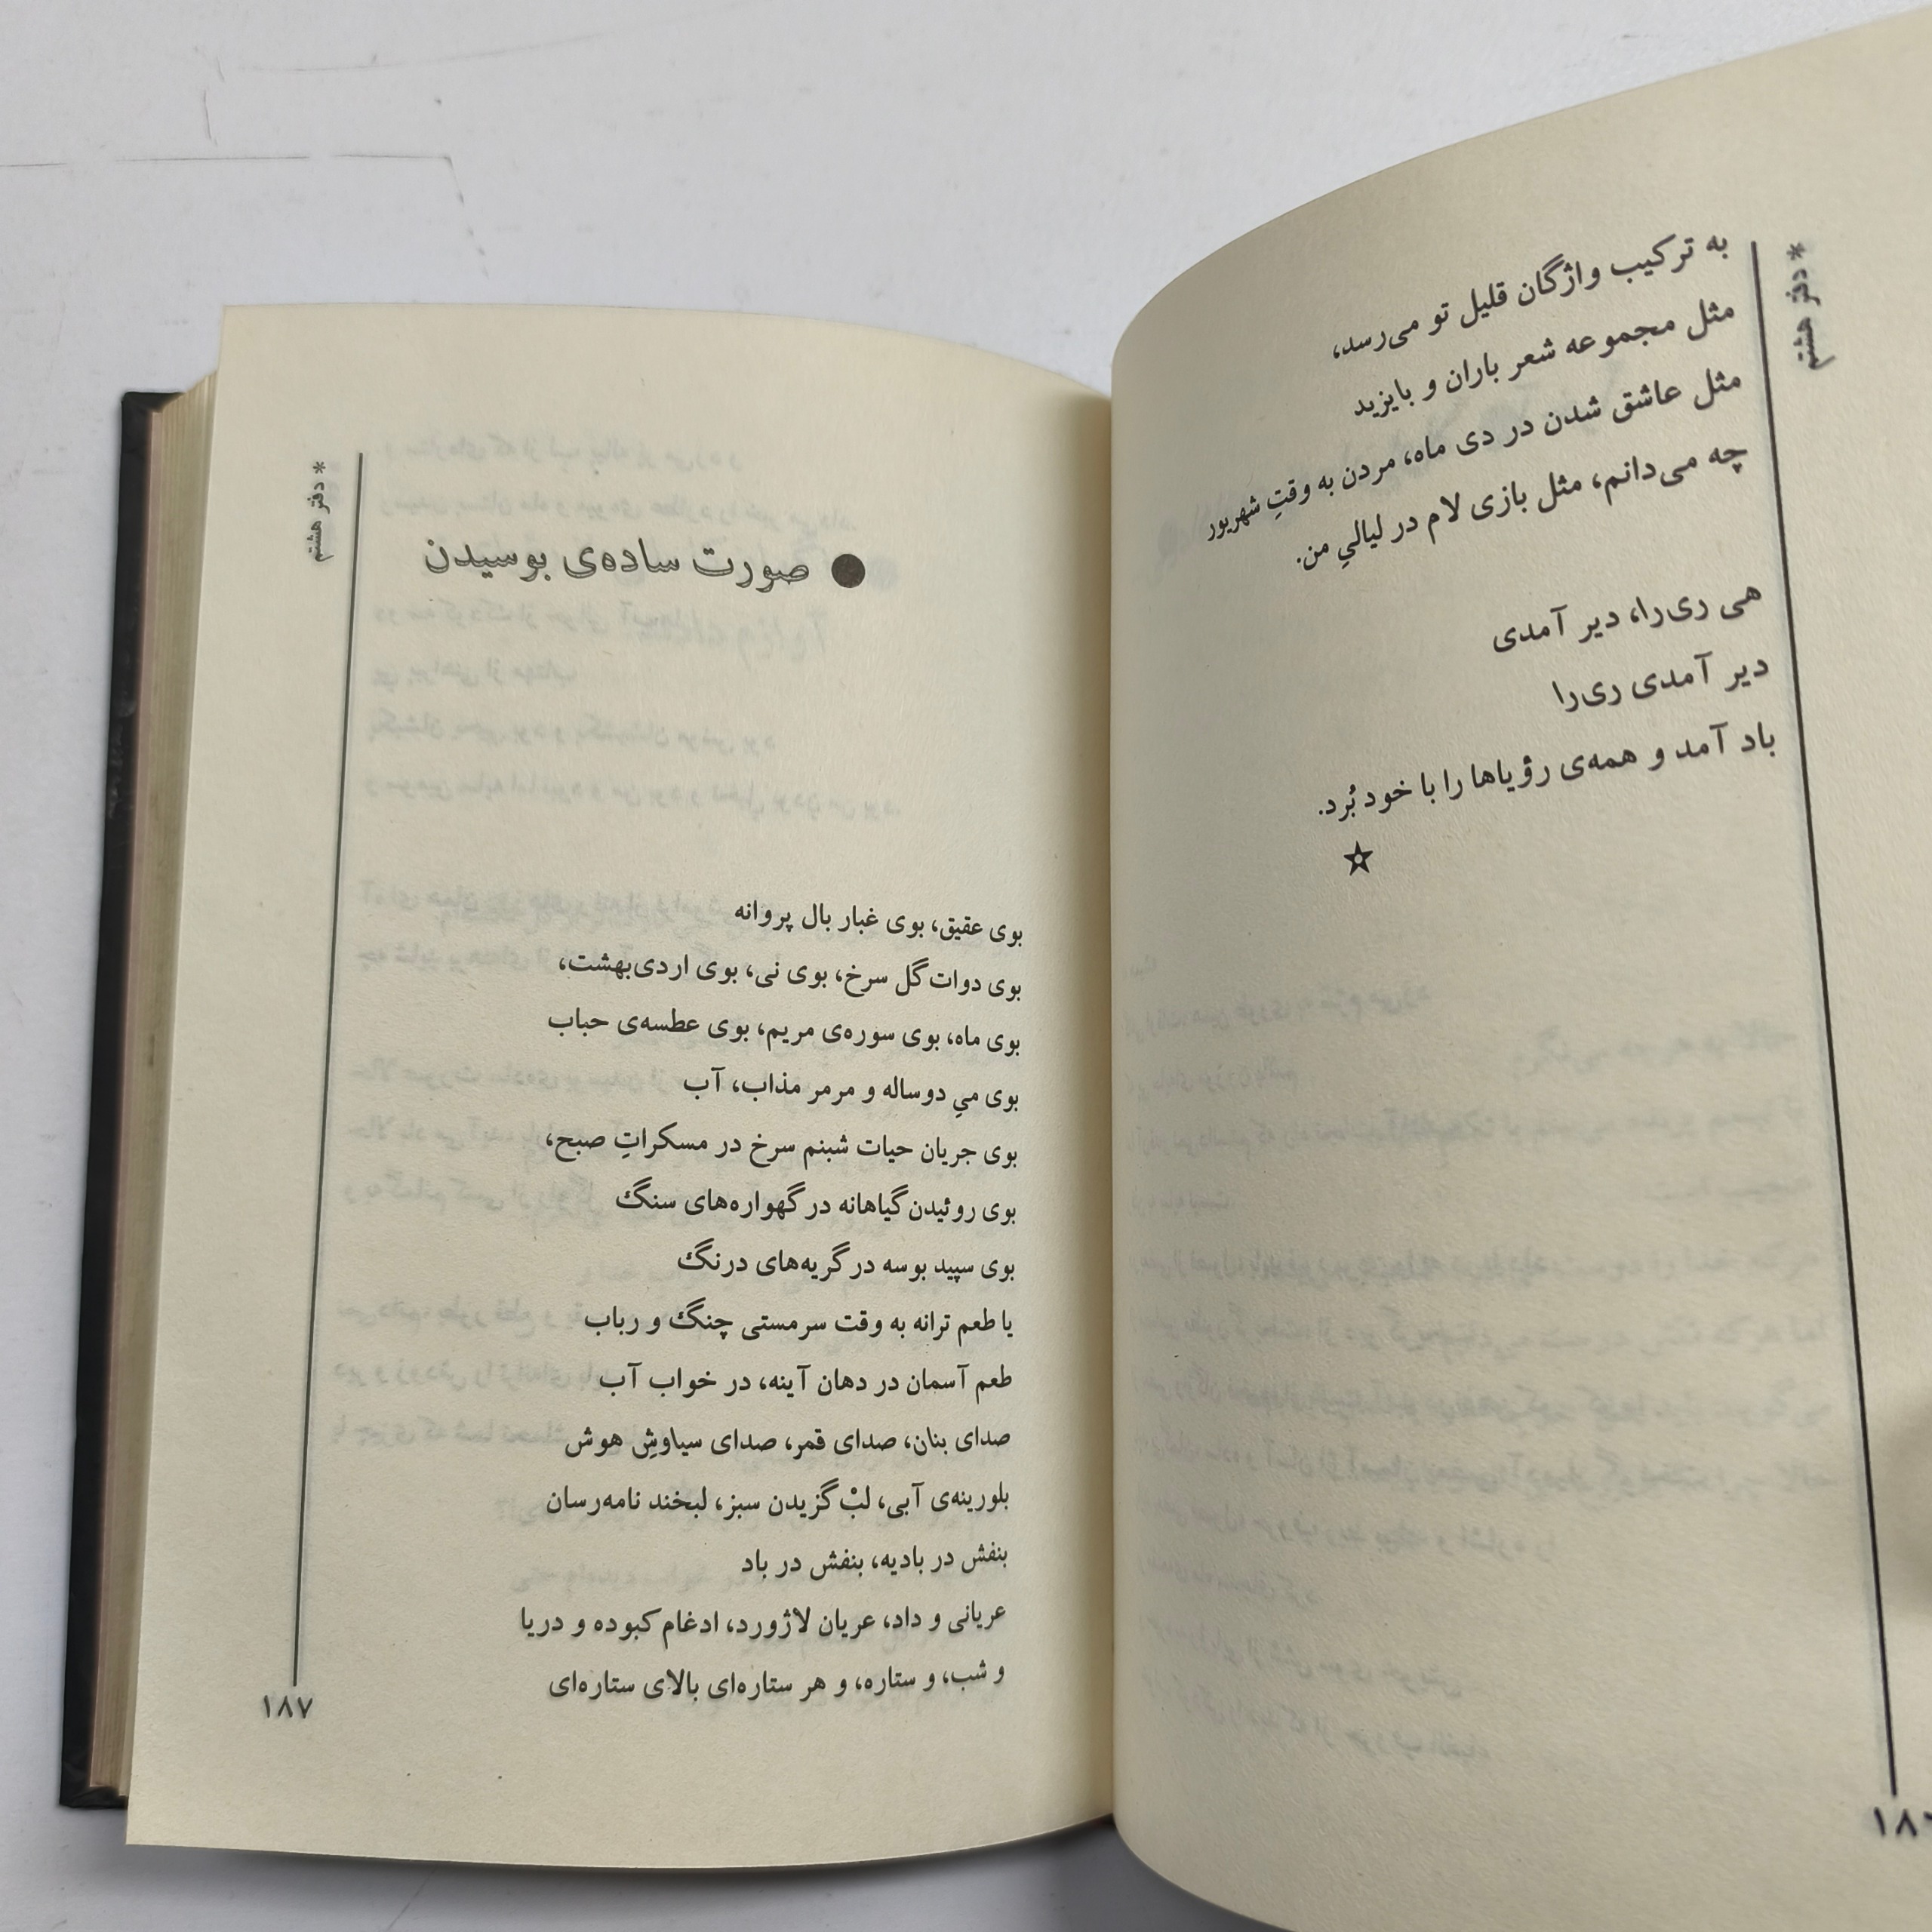 * دفتر هشتم
به ترکیب واژگان قلیل تو می‌رسد،
مثل مجموعه شعر باران و بایزید
مثل عاشق شدن در دی ماه، مردن به وقتِ شهریور
چه می‌دانم، مثل بازی لام در لیالیِ من.
هی ری‌را، دیر آمدی
دیر آمدی ری‌را
باد آمد و همه‌ی رؤیاها را با خود بُرد.
* دفتر هشتم
صورت ساده‌ی بوسیدن
بوی عقیق، بوی غبار بال پروانه
بوی دوات گل سرخ، بوی نی، بوی اردی‌بهشت،
بوی ماه، بوی سوره‌ی مریم، بوی عطسه‌ی حباب
بوی میِ دوساله و مرمر مذاب، آب
بوی جریان حیات شبنم سرخ در مسکراتِ صبح،
بوی روئیدن گیاهانه در گهواره‌های سنگ
بوی سپید بوسه در گریه‌های درنگ
یا طعم ترانه به وقت سرمستی چنگ و رباب
طعم آسمان در دهان آینه، در خواب آب
صدای بنان، صدای قمر، صدای سیاوشِ هوش
بلورینه‌ی آبی، لبْ گزیدن سبز، لبخند نامه‌رسان
بنفش در بادیه، بنفش در باد
عریانی و داد، عریان لاژورد، ادغام کبوده و دریا
و شب، و ستاره، و هر ستاره‌ای بالای ستاره‌ای
۱۸۷